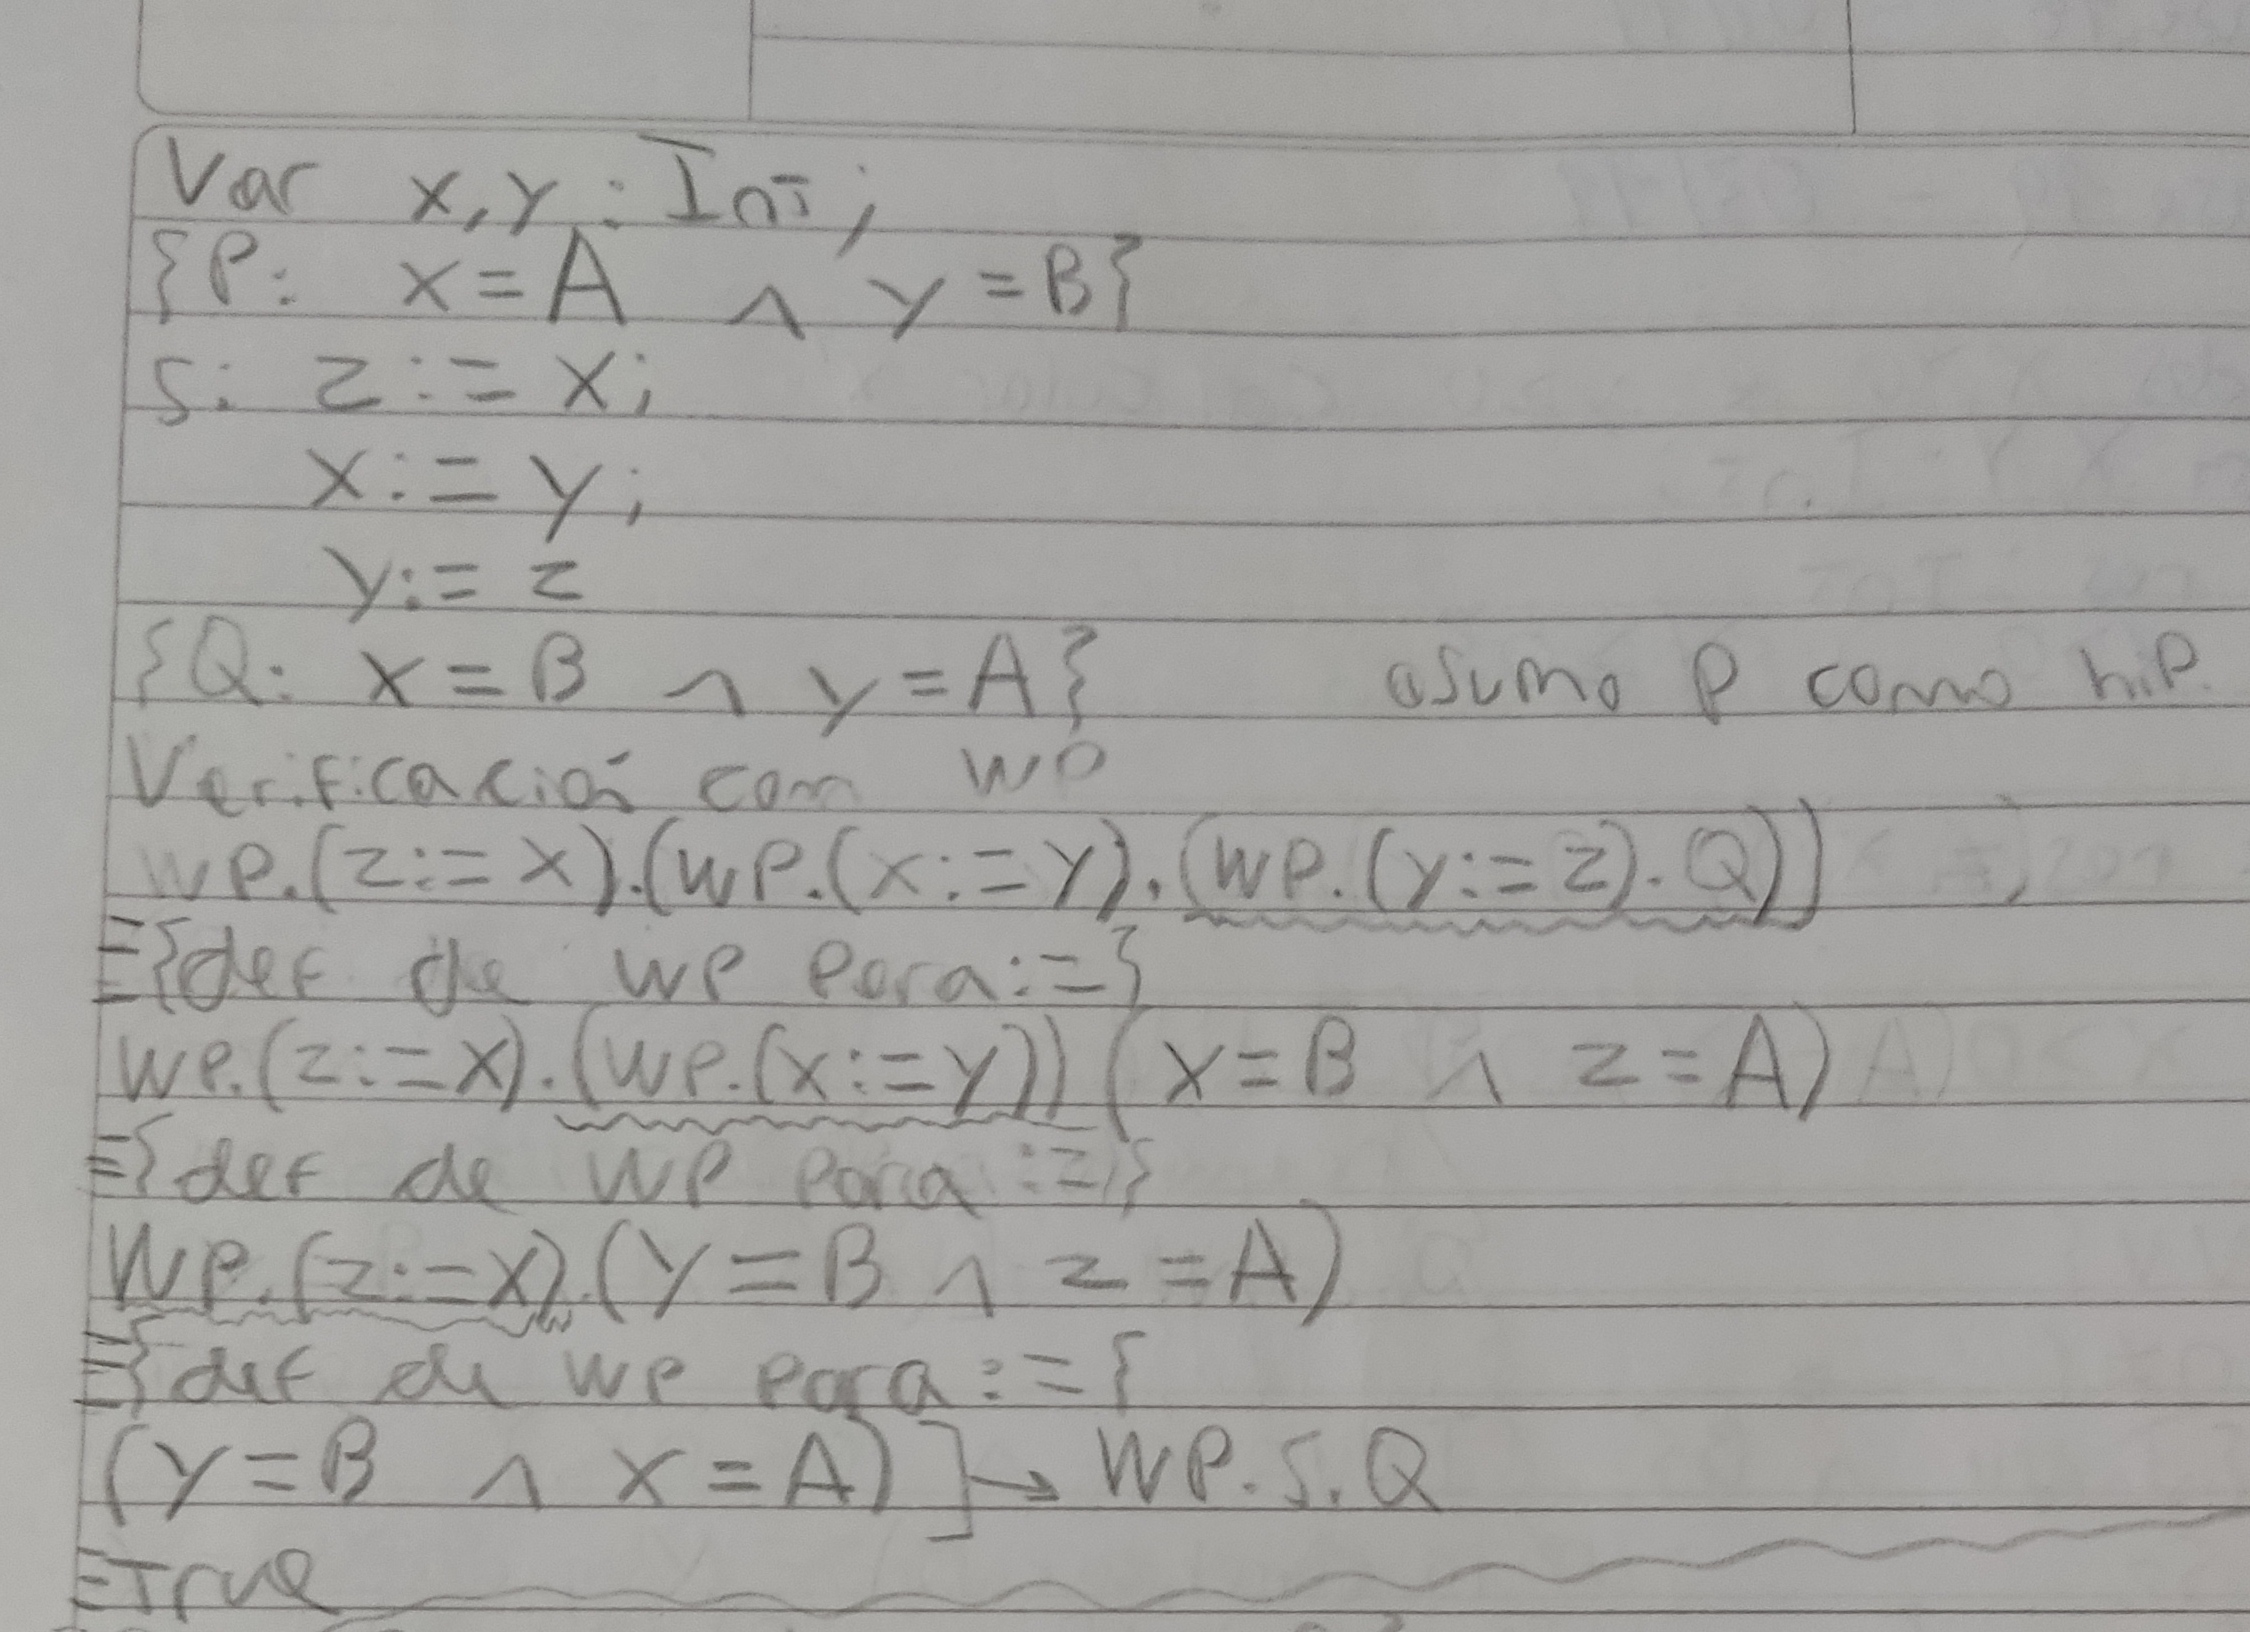 Var x, y : Int;
{P: x = A ∧ y = B}
S: z := x;
x := y;
y := z
{Q: x = B ∧ y = A} asumo P como hip.
Verificación con wp
wp.(z := x).(wp.(x := y).(wp.(y := z).Q))
≡{def de wp para :=}
wp.(z := x).(wp.(x := y))(x = B ∧ z = A)
≡{def de wp para :=}
wp.(z := x).(y = B ∧ z = A)
≡{def de wp para := {
(y = B ∧ x = A) ] → WP.S.Q
≡ True